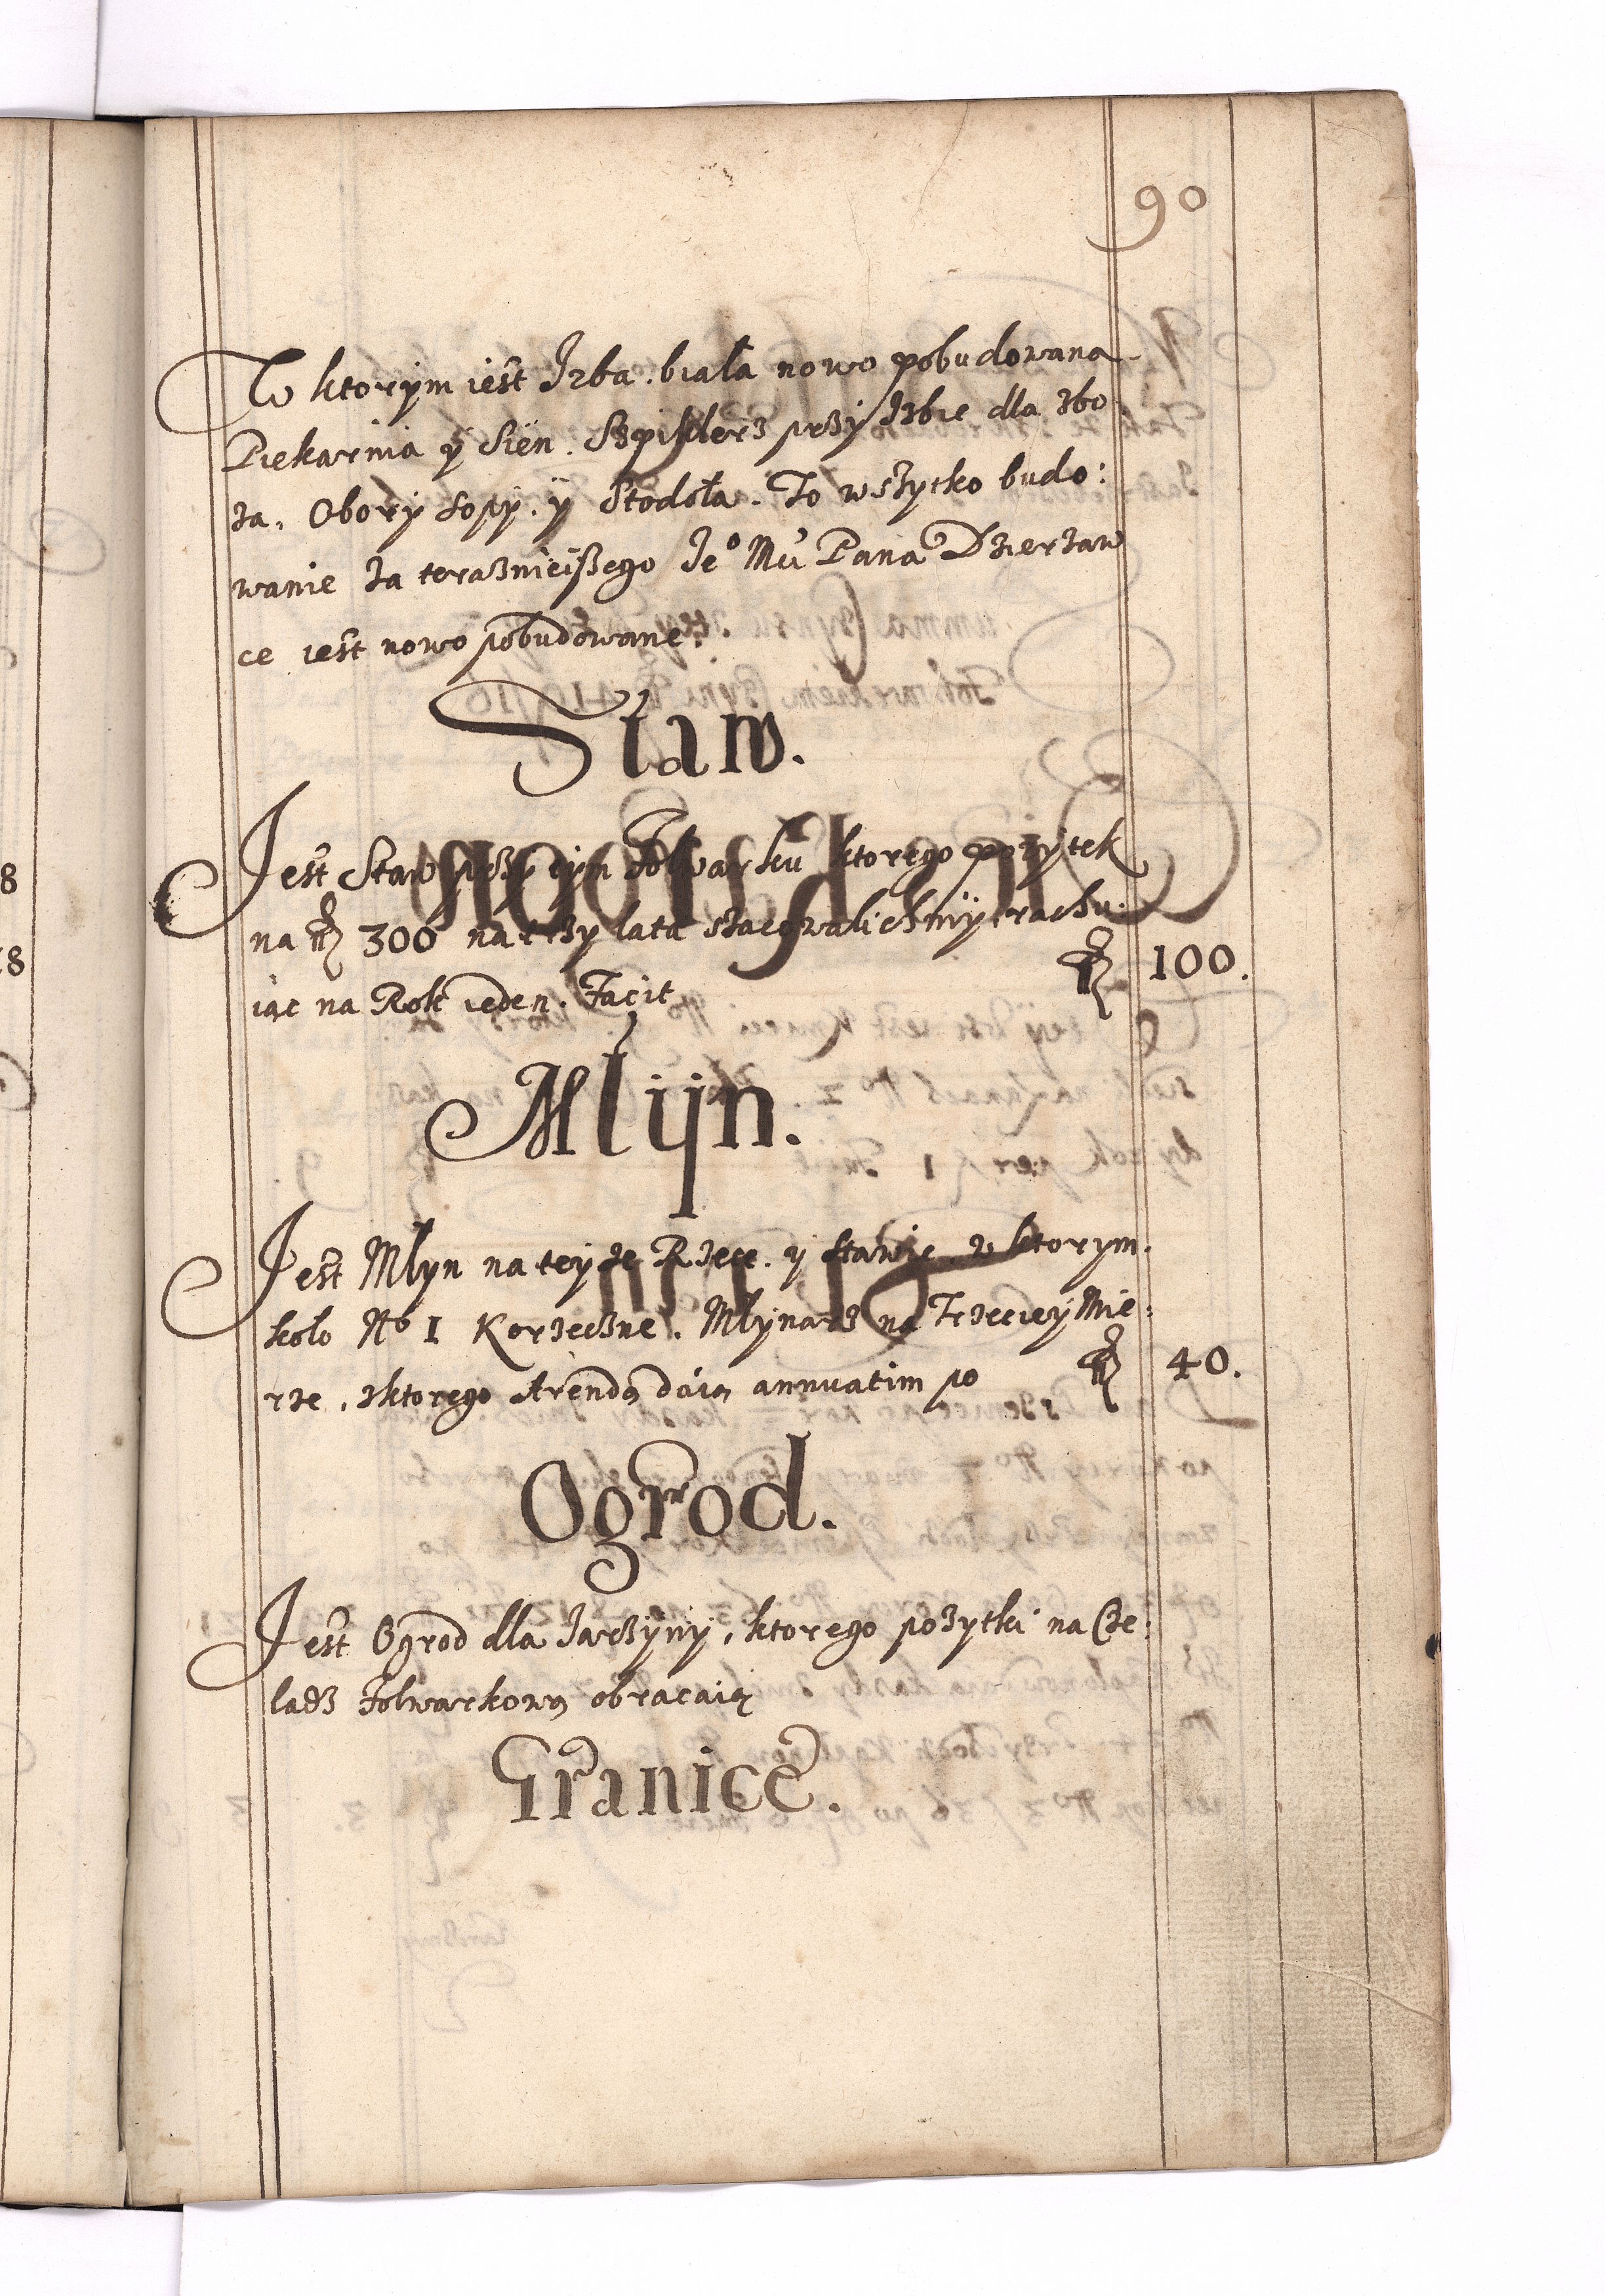 90
W ktorÿm iest Izba biała nowo pobudowana
Piekarnia ÿ Sień. Szpiklerz przÿ Izbie dla zbo
za, Oborÿ sopÿ. ÿ Stodoła. To wszytko budo:
wanie za teraznieÿszego Je⁰ Mci Pana Dzierzaw
ce iest nowo pobudowane.
Staw.
Jest Staw przÿ tÿm Folwarku ktorego pozÿtek
na fl 300 na trzy lata szacowalichmÿ rachu:
iąc na Rok ieden. Facit fl 100.
Młÿn.
Jest Młyn na teÿze Rzece. ÿ stawie. w ktorym.
koło N⁰ 1 Korzeczne. Młÿnarz na Trzecieÿ Mie:
rze, zktorego Arendą daią annuatim po fl 40.
Ogrod.
Jest Ogrod dla Jarzÿnÿ, ktorego pozytki na Cze:
ladz Folwarkową obracaią
Granice.
8
8